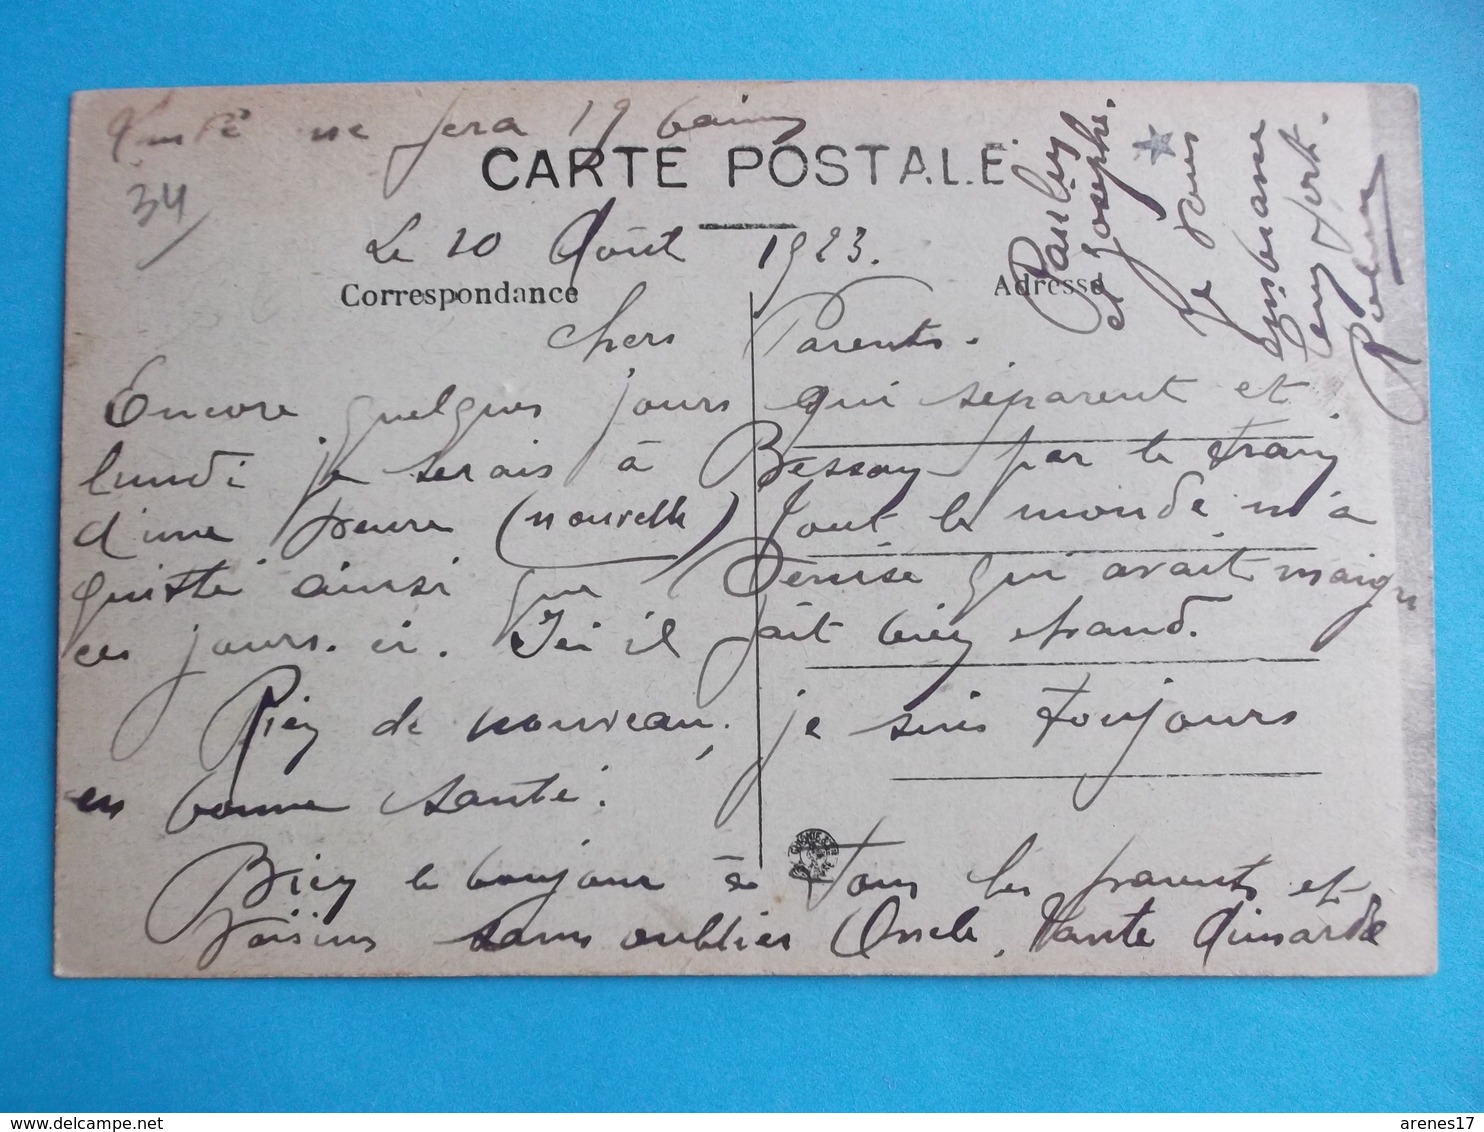 ne sera 19 bains
34
CARTE POSTALE
Le 20 Août 1923.
Correspondance
Adresse
Chers Parents.
Encore quelques jours qui séparent et
lundi je serais à Bessay par le train
d'une heure (nouvelle) Tout le monde m'a
quitté ainsi que Denise qui avait maigri
ces jours-ci. Ici il fait bien chaud.
Rien de nouveau, je suis toujours
en bonne santé.
Bien le bonjour à tous les parents et
voisins sans oublier Oncle, Tante
et Joseph.
Je vous
embrasse
bien fort.
arenes17